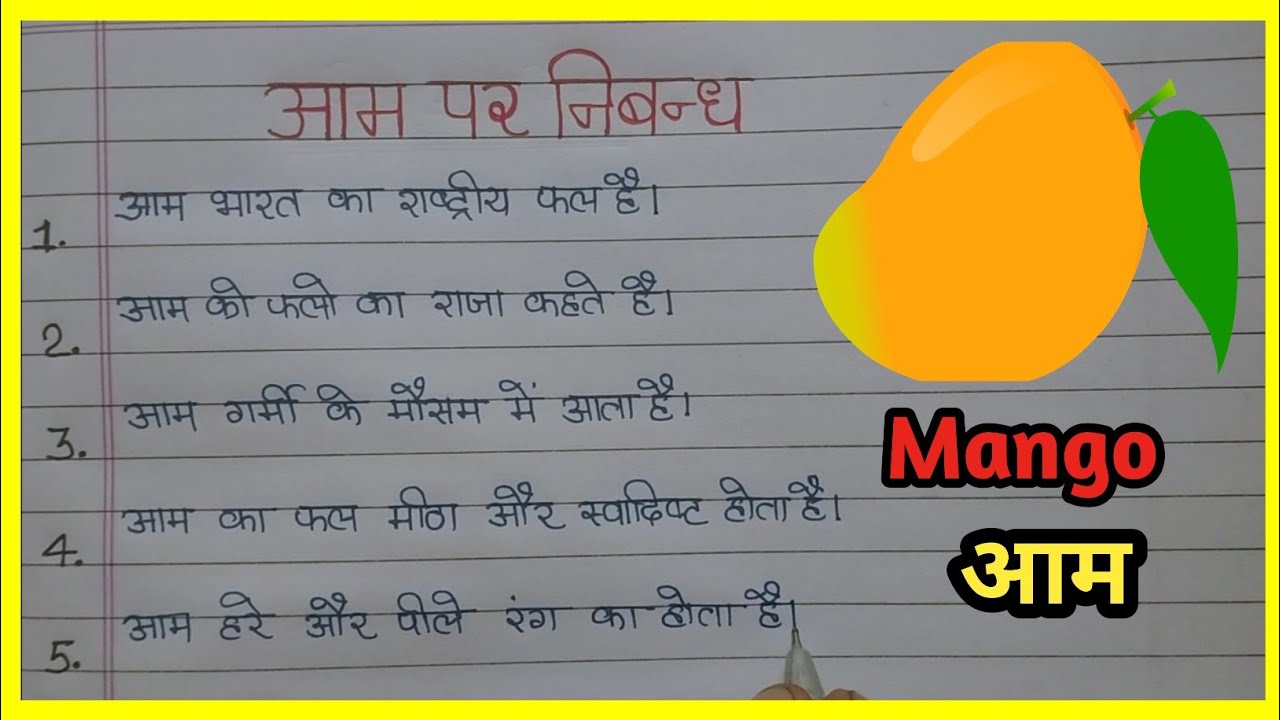 आम पर निबन्ध
1. आम भारत का राष्ट्रीय फल है।
2. आम को फलो का राजा कहते है।
3. आम गर्मी के मौसम में आता है।
4. आम का फल मीठा और स्वादिष्ट होता है।
5. आम हरे और पीले रंग का होता है।
Mango
आम